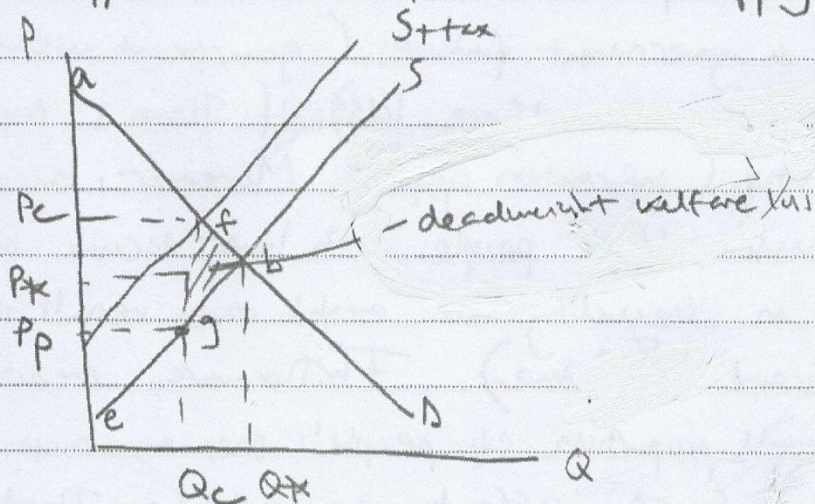 P
S+tax
a
S
Pc
f
deadweight welfare
b
P*
Pp
g
e
D
Qc Q*
Q